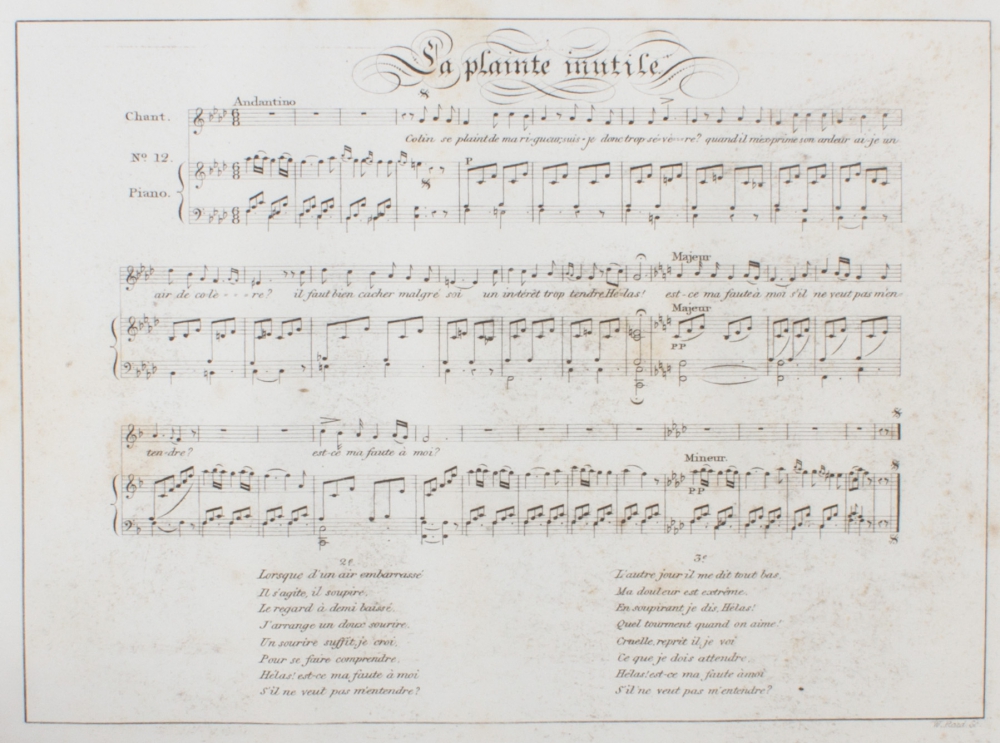 La plainte inutile
Andantino
Chant.
Colin se plaint de ma ri-gueur, suis-je donc trop sé-vè---re? quand il m'exprime son ardeur ai-je un
No. 12.
P
Piano.
Majeur
air de co-lè - - - re? il faut bien cacher malgré soi un in-térêt trop tendre, Hé-las! est-ce ma faute à moi s'il ne veut pas m'en-
Majeur
PP
ten-dre? est-ce ma faute à moi?
Mineur.
PP
2e.
Lorsque d'un air embarrassé
Il s'agite, il soupire.
Le regard à demi baissé.
J'arrange un doux sourire.
Un sourire suffit, je croi,
Pour se faire comprendre.
Hélas! est-ce ma faute à moi
S'il ne veut pas m'entendre?
3e.
L'autre jour il me dit tout bas.
Ma douleur est extrême.
En soupirant je dis, Hélas!
Quel tourment quand on aime!
Cruelle, reprit il, je voi
Ce que je dois attendre.
Hélas! est-ce ma faute à moi
S'il ne veut pas m'entendre?